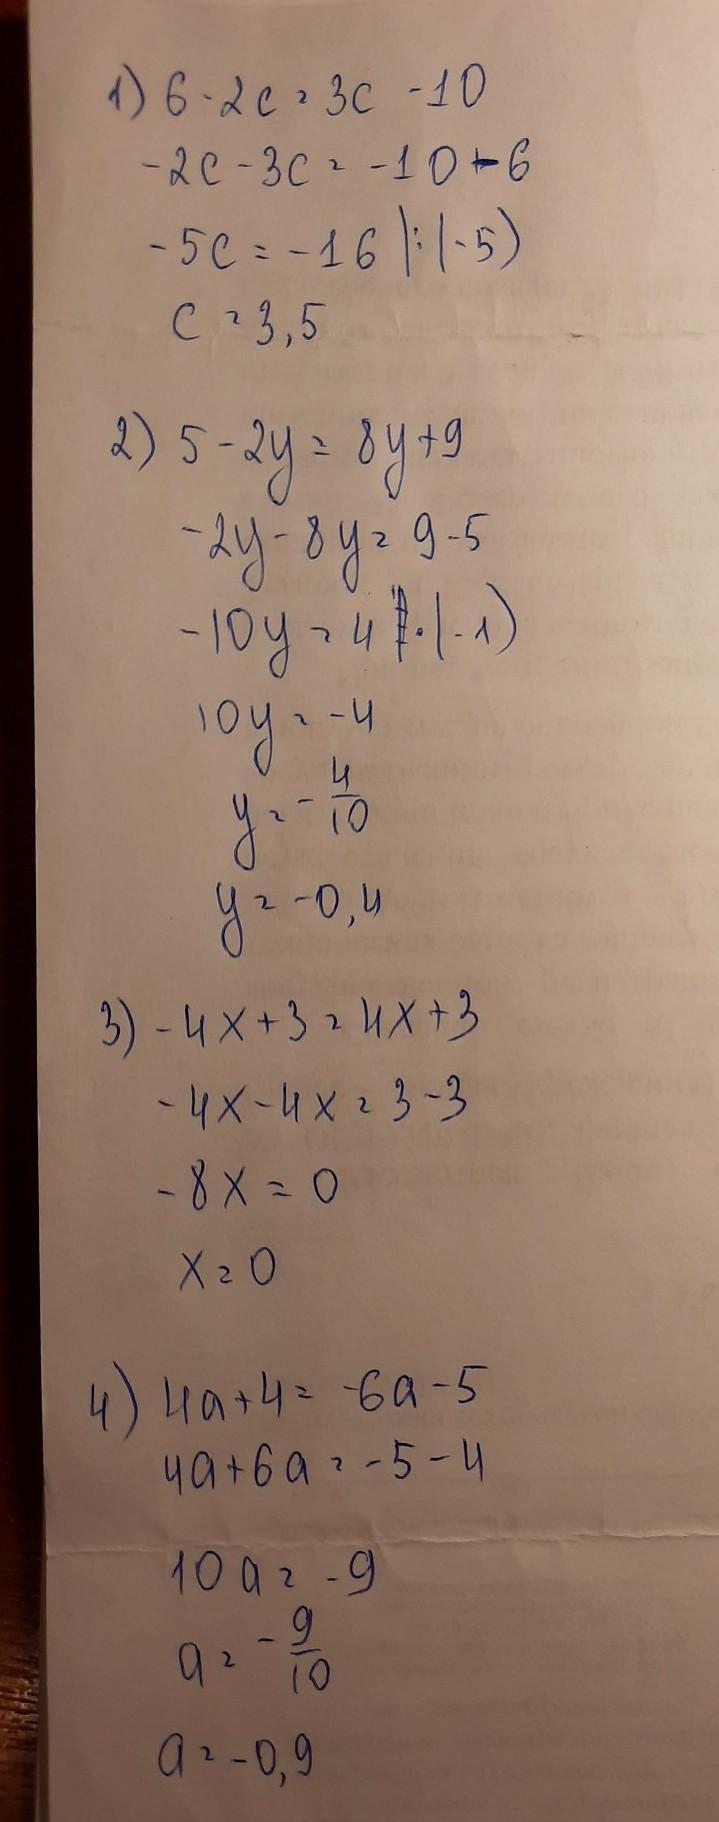 1) 6 - 2c = 3c - 10
-2c - 3c = -10 - 6
-5c = -16 |:(-5)
c = 3,5
2) 5 - 2y = 8y + 9
-2y - 8y = 9 - 5
-10y = 4 |·(-1)
10y = -4
y = -4/10
y = -0,4
3) -4x + 3 = 4x + 3
-4x - 4x = 3 - 3
-8x = 0
x = 0
4) 4a + 4 = -6a - 5
4a + 6a = -5 - 4
10a = -9
a = -9/10
a = -0,9